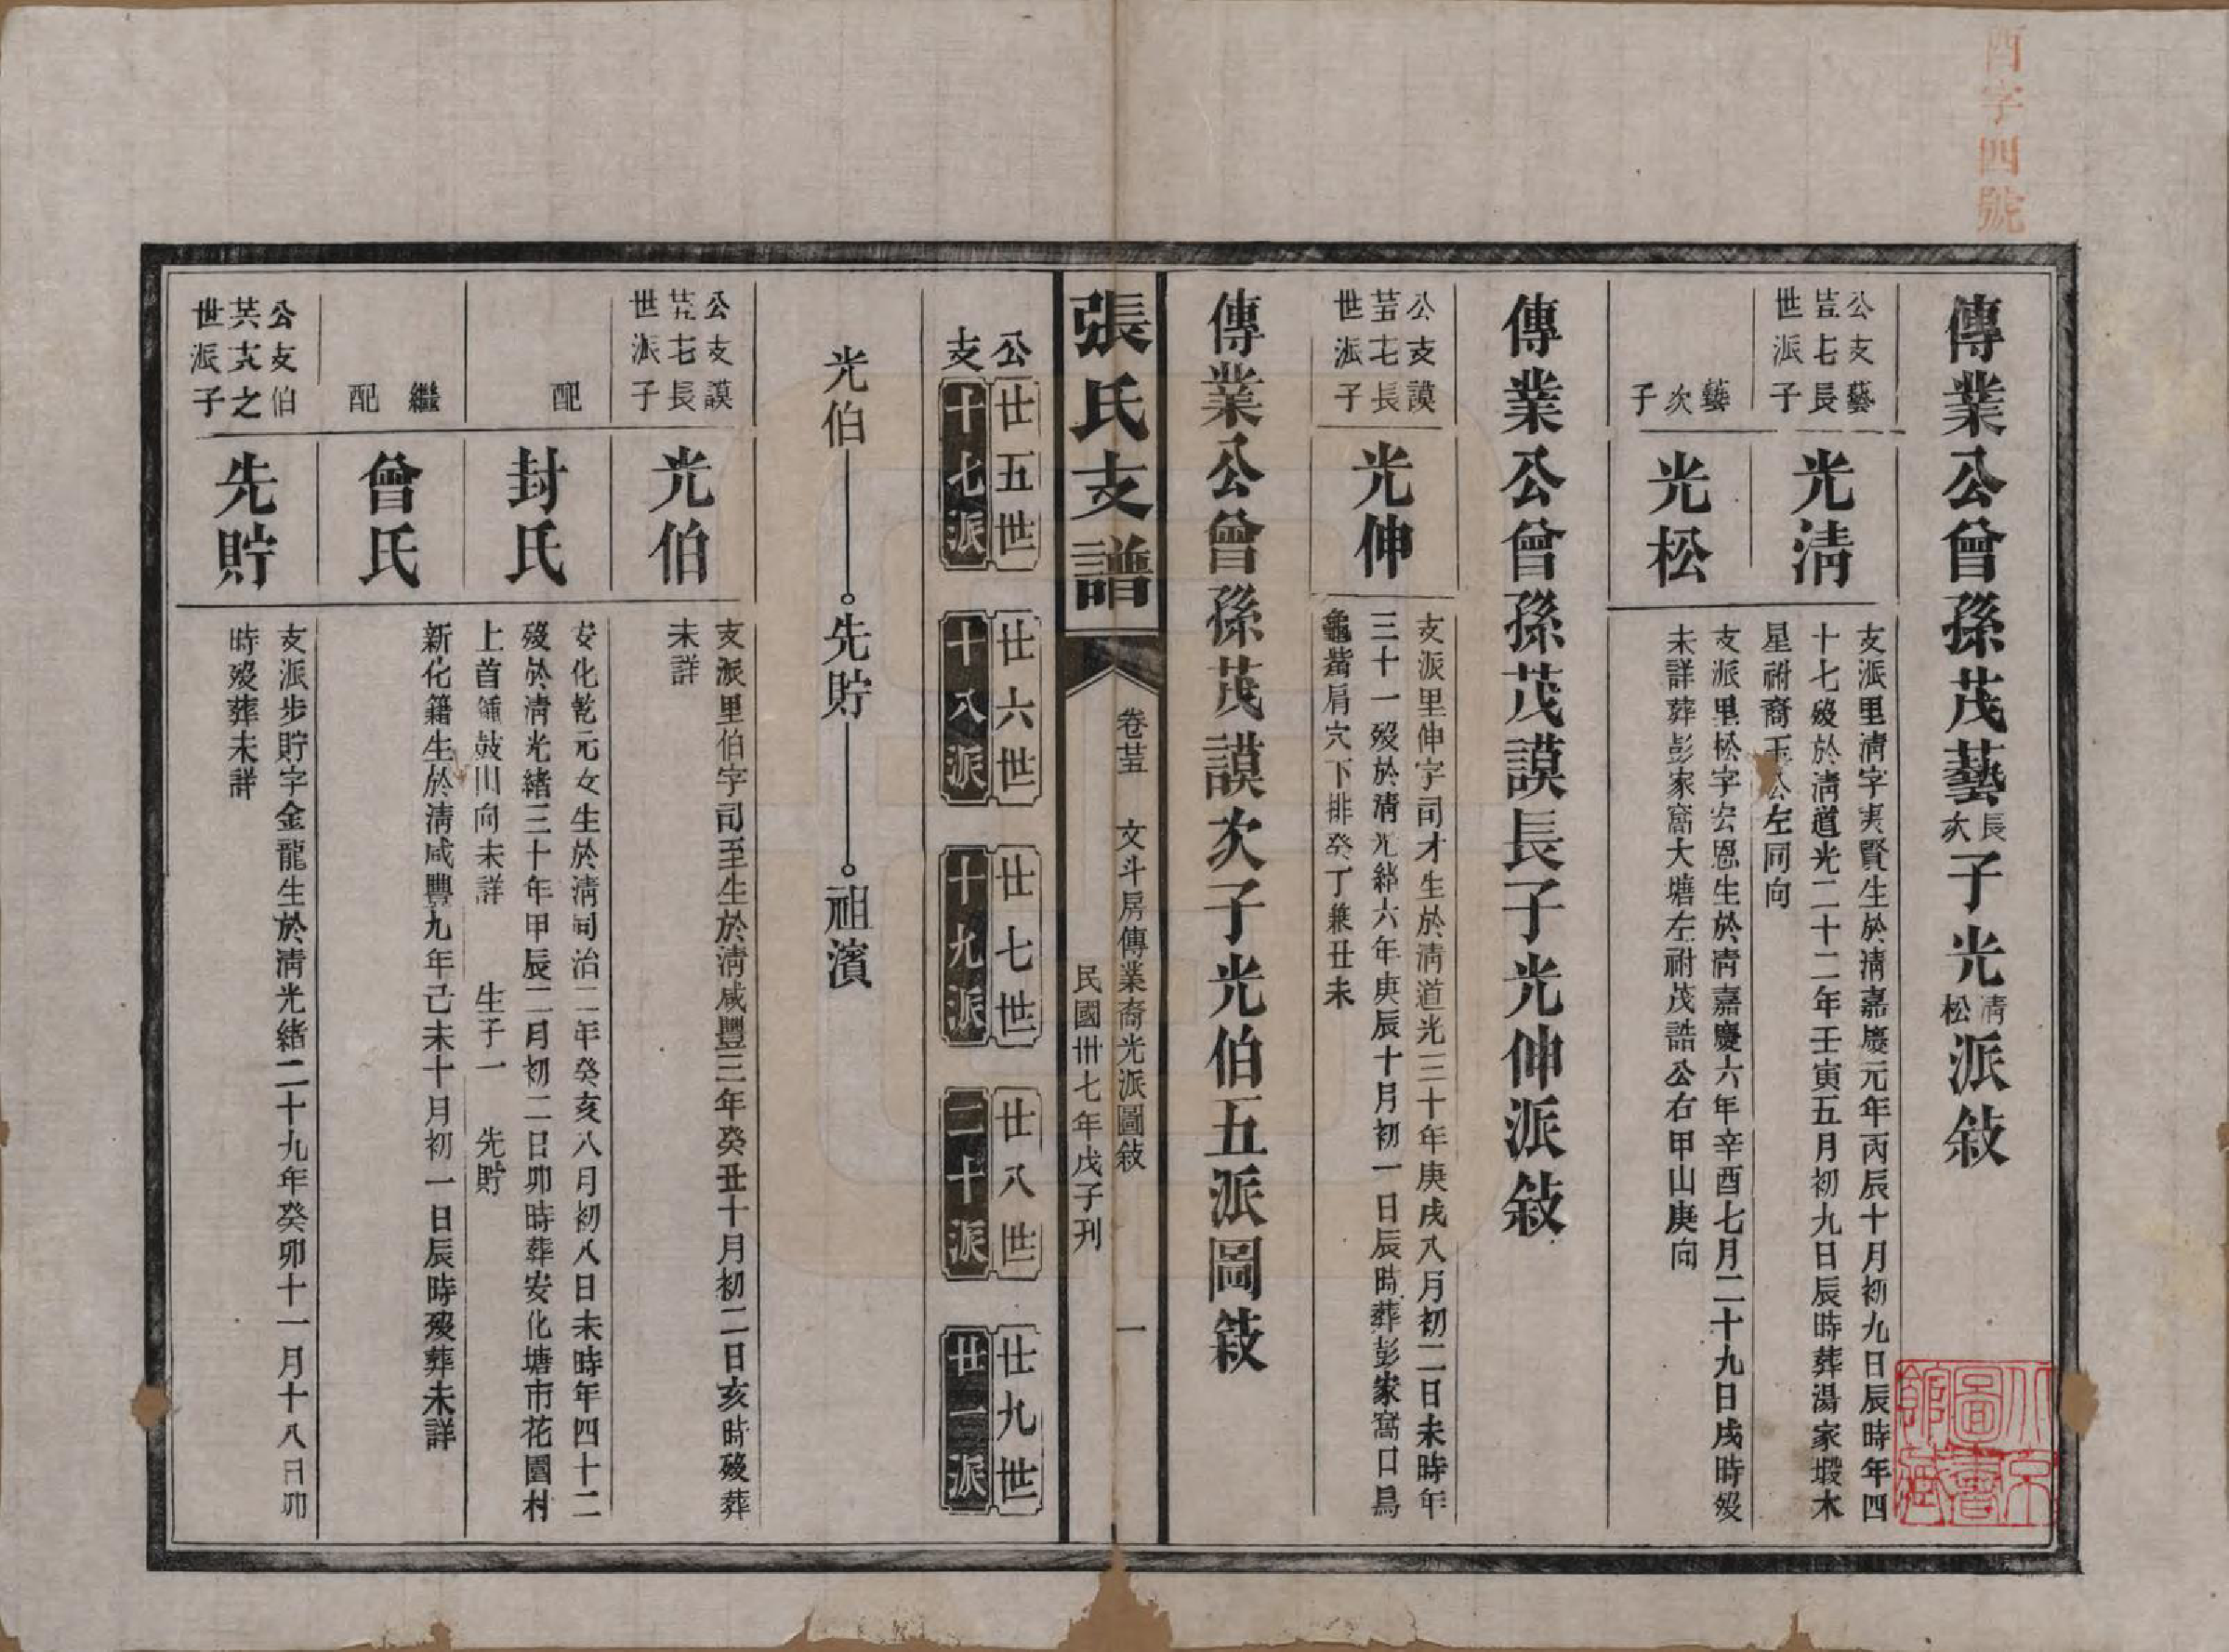 酉字四號
傳業公曾孫茂藝長次子光清松派敍
公支藝
廿五十七長
世派子
光清
支派里清字夷賢生於清嘉慶元年丙辰十月初九日辰時年四
十七歿於清道光二十二年壬寅五月初九日辰時葬湯家塅木
星祔裔玉公左同向
藝次子
光松
支派里松字宏恩生於清嘉慶六年辛酉七月二十九日戌時歿
未詳葬彭家窩大塘左祔茂誥公右甲山庚向
傳業公曾孫茂謨長子光伸派敍
公支謨
廿五十七長
世派子
光伸
支派里伸字司才生於清道光三十年庚戌八月初二日未時年
三十一歿於清光緒六年庚辰十月初一日辰時葬彭家窩口昌
龜觜肩穴下排癸丁兼丑未
傳業公曾孫茂謨次子光伯五派圖敍
張氏支譜
卷廿五 文斗房傳業裔光派圖敍 一
民國卅七年戊子刊
公 廿五世 廿六世 廿七世 廿八世 廿九世
支 十七派 十八派 十九派 二十派 廿一派
光伯 先貯 祖濱
公支謨
廿五十七長
世派子
光伯
支派里伯字司至生於清咸豐三年癸丑十月初二日亥時歿葬
未詳
配
封氏
安化乾元女生於清同治二年癸亥八月初八日未時年四十二
歿於清光緒三十年甲辰二月初二日卯時葬安化塘市花園村
上首鍾鼓山向未詳 生子一 先貯
繼配
曾氏
新化籍生於清咸豐九年己未十月初一日辰時歿葬未詳
公支伯
廿六十八之
世派子
先貯
支派步貯字金龍生於清光緒二十九年癸卯十一月十八日卯
時歿葬未詳
北京圖書館藏